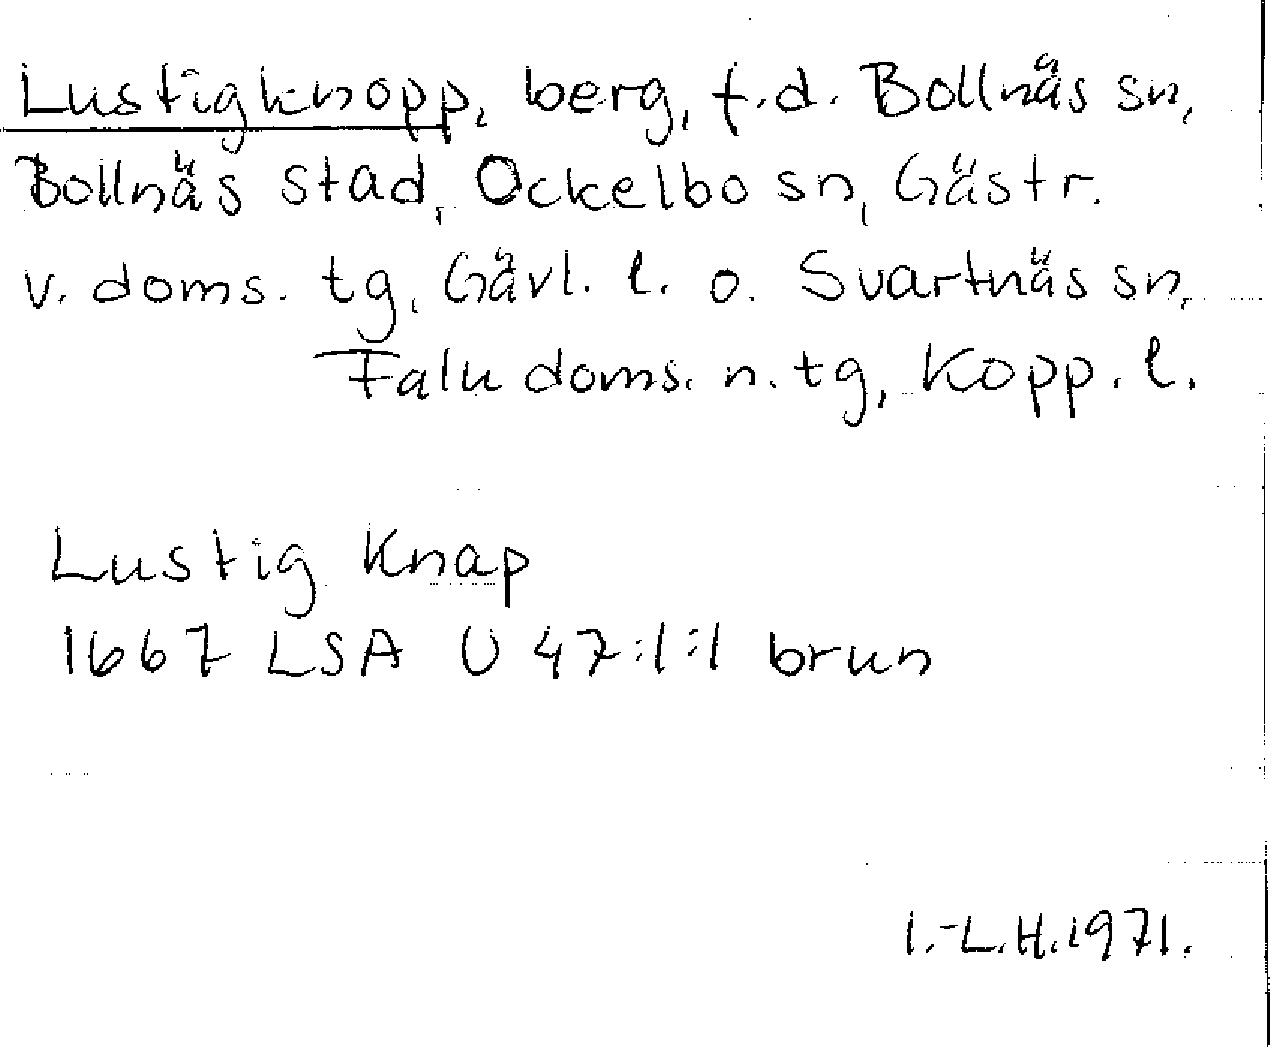 Lustigknopp, berg, f.d. Bollnäs sn,
Bollnäs stad, Ockelbo sn, Gästr.
v. doms. tg, Gävl. l. o. Svartnäs sn,
Falu doms. n. tg, Kopp. l.
Lustig Knap
1667 LSA U 47:1:1 brun
I.-L.H.1971.